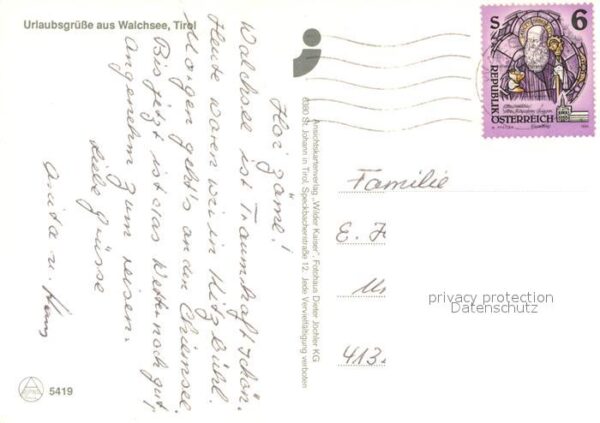 Urlaubsgrüße aus Walchsee, Tirol
Hoi zäme!
Walchsee ist Traumhaft schön.
Heute waren wir in Kitzbühl.
Morgen geht's an den Chiemsee.
Bis jetzt ist das Wetter noch gut,
angenehm zum reisen.
Liebe Grüsse
Anita u. Hans
Ansichtskartenverlag „Wilder Kaiser", Fotohaus Dieter Jöchler KG
6380 St. Johann in Tirol, Speckbacherstraße 12. Jede Vervielfältigung verboten
S 6
REPUBLIK
ÖSTERREICH
Familie
E. F
413
privacy protection
Datenschutz
5419